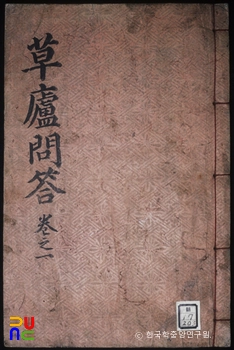 草廬問答
卷之一
© 한국학중앙연구원